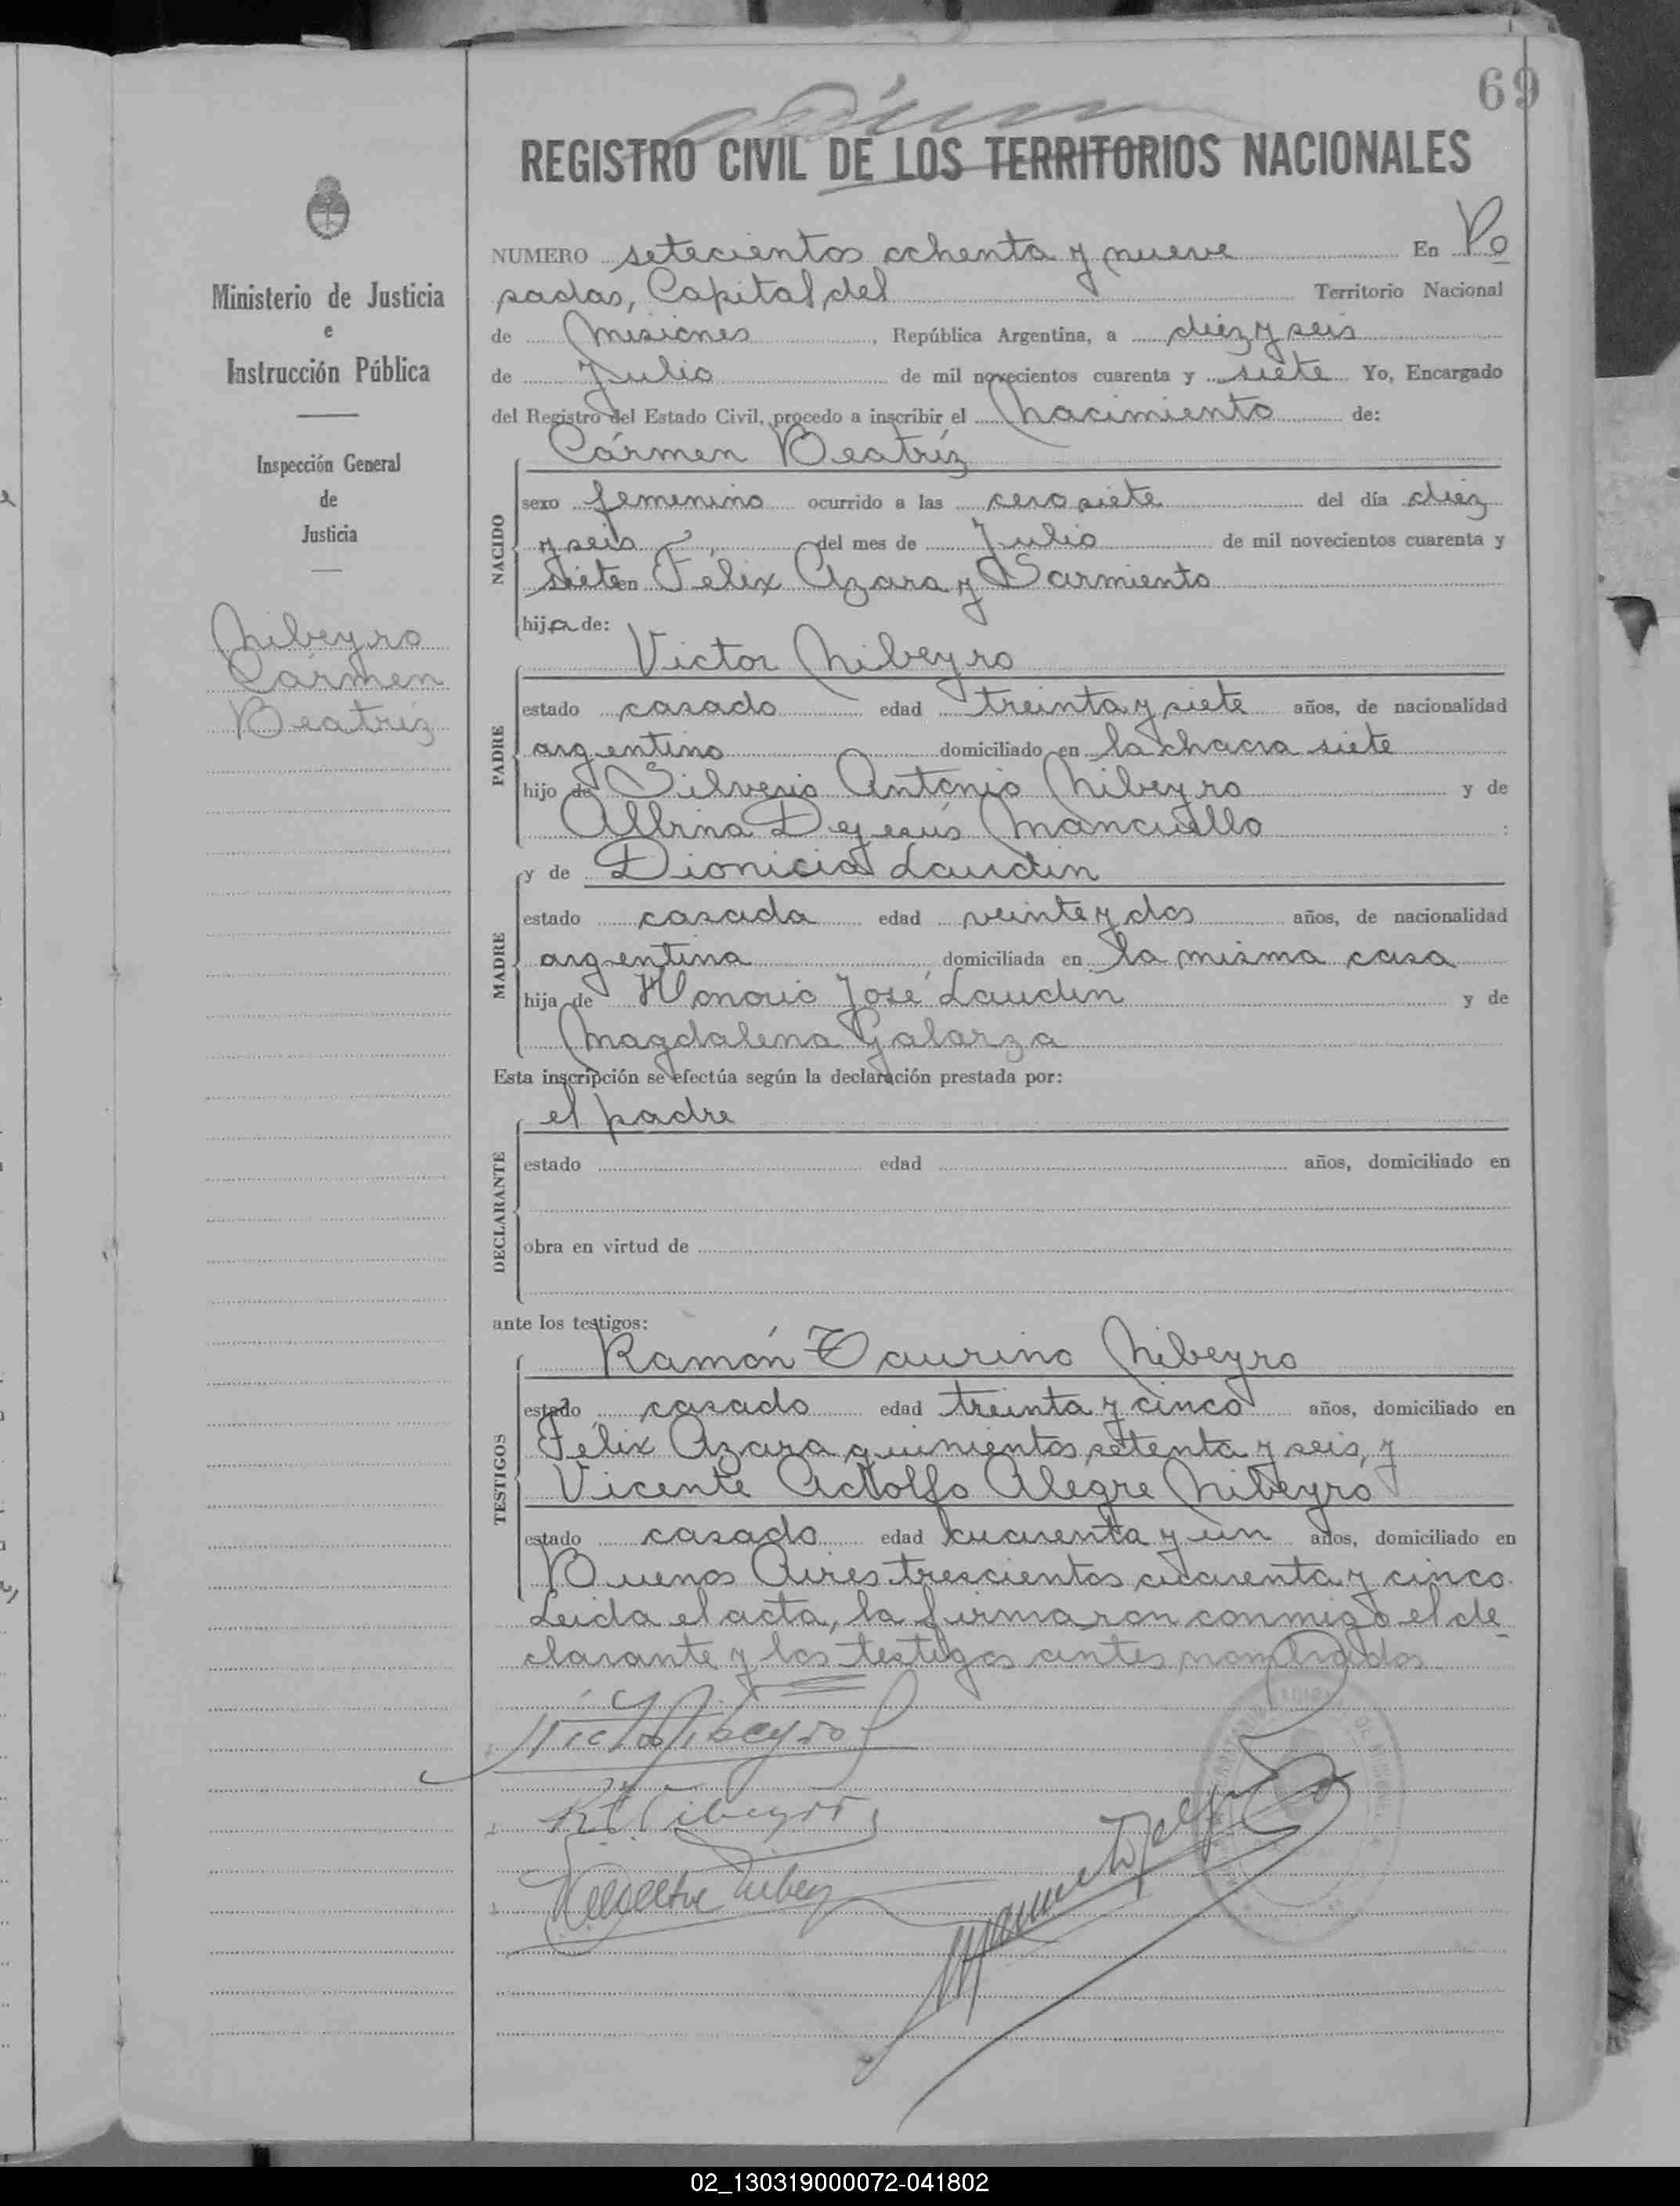 69
REGISTRO CIVIL DE LOS TERRITORIOS NACIONALES
Ministerio de Justicia
e
Instrucción Pública
Inspección General
de
Justicia
Nibeyro
Cármen
Beatríz
NUMERO setecientos ochenta y nueve En Po
sadas, Capital del Territorio Nacional
de Misiones, República Argentina, a diez y seis
de Julio de mil novecientos cuarenta y siete Yo, Encargado
del Registro del Estado Civil, procedo a inscribir el Nacimiento de:
Cármen Beatríz
NACIDO
sexo femenino ocurrido a las cero siete del día diez
y seis del mes de Julio de mil novecientos cuarenta y
siete en Félix Azara y Sarmiento
hija de:
Victor Nibeyro
PADRE
estado casado edad treinta y siete años, de nacionalidad
argentino domiciliado en la chacra siete
hijo de Silverio Antonio Nibeyro y de
Albina Dejesús Mancuello :
y de Dionicia Laudin
MADRE
estado casada edad veinte y dos años, de nacionalidad
argentina domiciliada en la misma casa
hija de Honorio José Laudin y de
Magdalena Galarza
Esta inscripción se efectúa según la declaración prestada por:
el padre
DECLARANTE
estado edad años, domiciliado en
obra en virtud de
ante los testigos:
Ramón Taurino Nibeyro
TESTIGOS
estado casado edad treinta y cinco años, domiciliado en
Félix Azara quinientos setenta y seis, y
Vicente Adolfo Alegre Nibeyro
estado casado edad cuarenta y un años, domiciliado en
Buenos Aires trescientos cuarenta y cinco.
Leida el acta, la firmaron conmigo el de
clarante y los testigos antes nombrados
Victor Nibeyro
R T Nibeyro
02_130319000072-041802